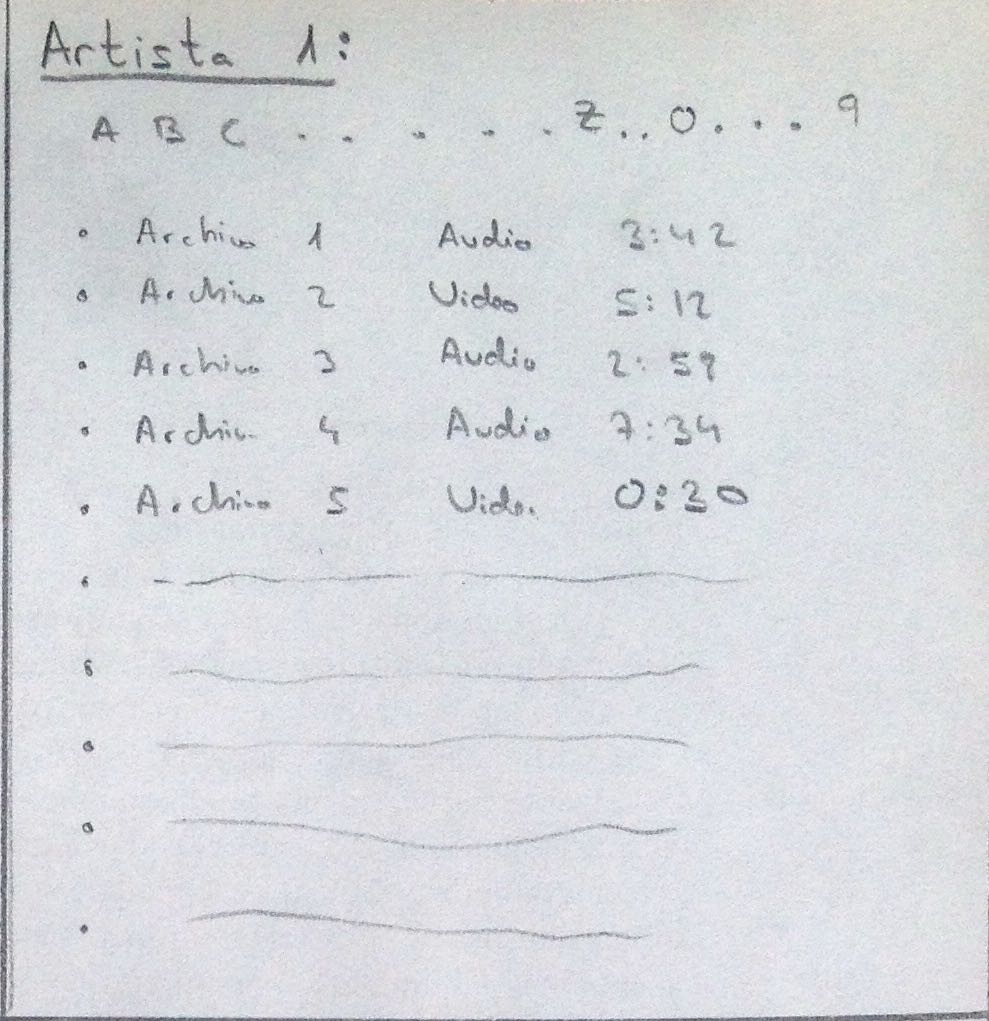 Artista 1:
A B C . . . . . Z . . 0 . . . 9
• Archivo 1 Audio 3:42
• Archivo 2 Video 5:12
• Archivo 3 Audio 2:59
• Archivo 4 Audio 7:34
• Archivo 5 Video 0:30